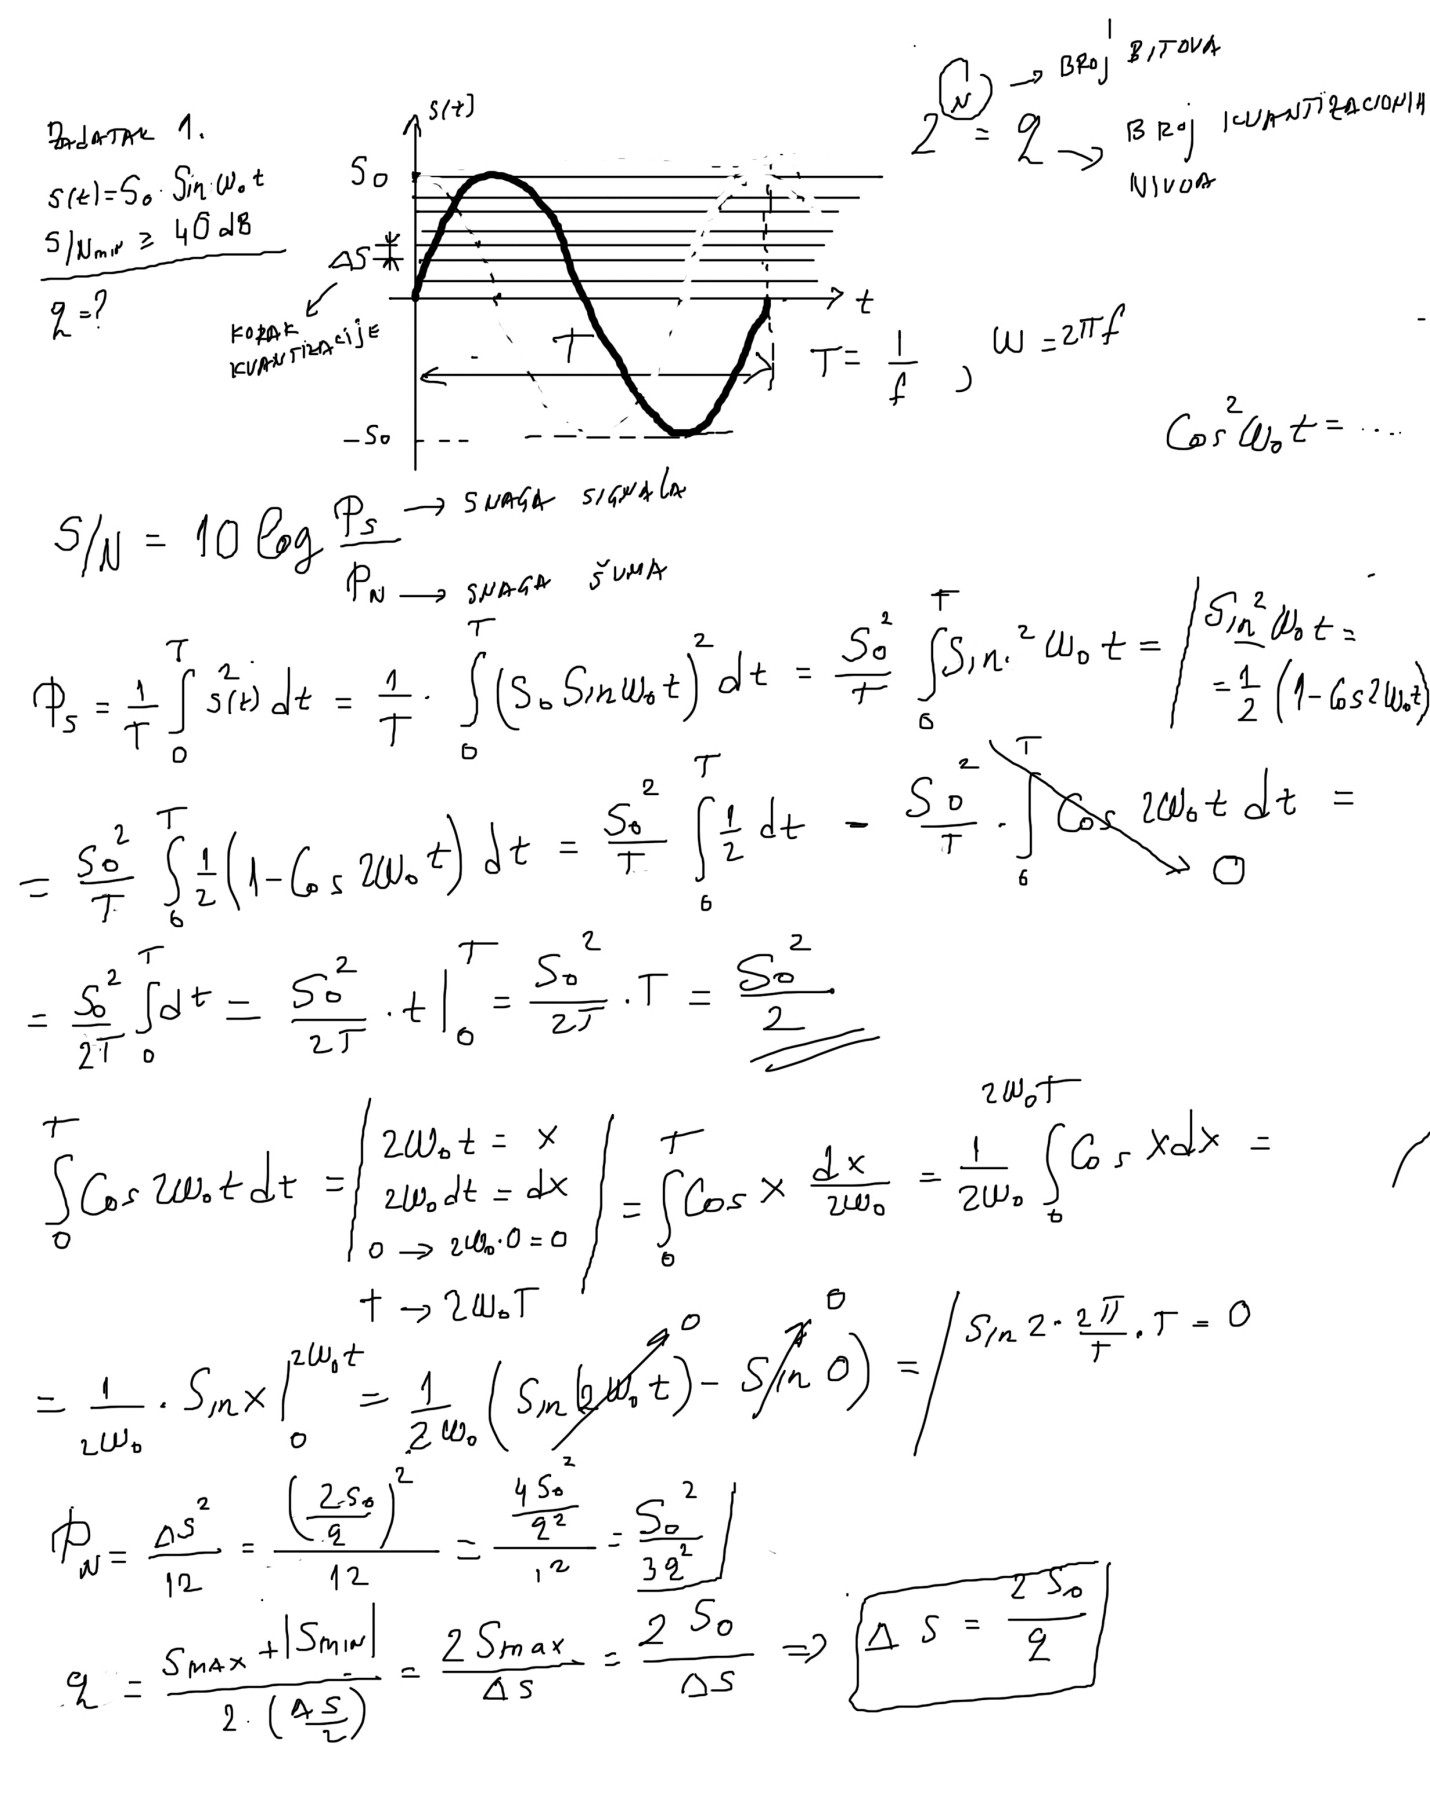 ZADATAK 1.
s(t)=S₀·Sin ω₀t
S/Nmin ≥ 40 dB
q=?
s(t)
S₀
ΔS
KORAK
KVANTIZACIJE
T
-S₀
t
2^N = q
N → BROJ BITOVA
q → BROJ KVANTIZACIONIH
NIVOA
T = 1/f , ω = 2πf
Cos²ω₀t = ....
S/N = 10 log Ps/PN
Ps → SNAGA SIGNALA
PN → SNAGA ŠUMA
Ps = 1/T ∫₀ᵀ s²(t) dt = 1/T · ∫₀ᵀ (S₀ Sin ω₀t)² dt = S₀²/T ∫₀ᵀ Sin² ω₀t = | Sin² ω₀t =
= 1/2 (1-Cos2ω₀t)
= S₀²/T ∫₀ᵀ 1/2 (1-Cos 2ω₀t) dt = S₀²/T ∫₀ᵀ 1/2 dt - S₀²/T · ∫₀ᵀ Cos 2ω₀t dt → 0 =
= S₀²/2T ∫₀ᵀ dt = S₀²/2T · t |₀ᵀ = S₀²/2T · T = S₀²/2
∫₀ᵀ Cos 2ω₀t dt = | 2ω₀t = x
2ω₀dt = dx
0 → 2ω₀·0=0
T → 2ω₀T
| = ∫₀ᵀ Cos x dx/2ω₀ = 1/2ω₀ ∫₀^2ω₀T Cos x dx =
= 1/2ω₀ · Sin x |₀^2ω₀t = 1/2ω₀ (Sin(2ω₀t) → 0 - Sin 0 → 0) = | Sin 2· 2π/T · T = 0
PN = ΔS²/12 = (2S₀/q)²/12 = 4S₀²/q²/12 = S₀²/3q²
q = SMAX + |SMIN| / 2·(ΔS/2) = 2Smax/ΔS = 2S₀/ΔS ⇒ ΔS = 2S₀/q